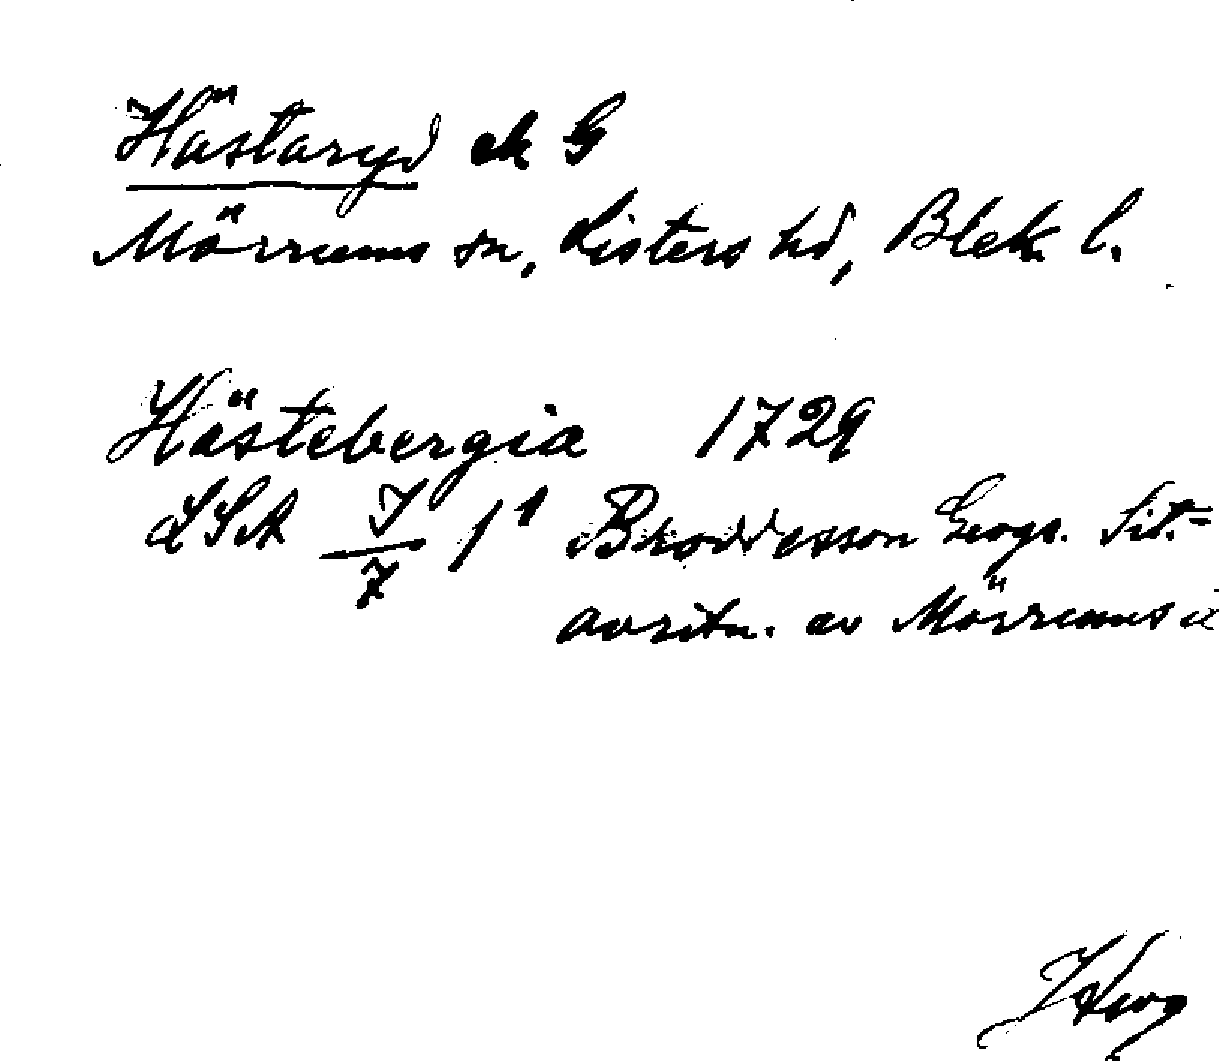 Hästaryd ek G
Mörrums sn, Listers hd, Blek. l.
Hästebergia 1729
LSA J/7 1¹ Broddesson Geogr. Sit.=
avritn. av Mörrums å